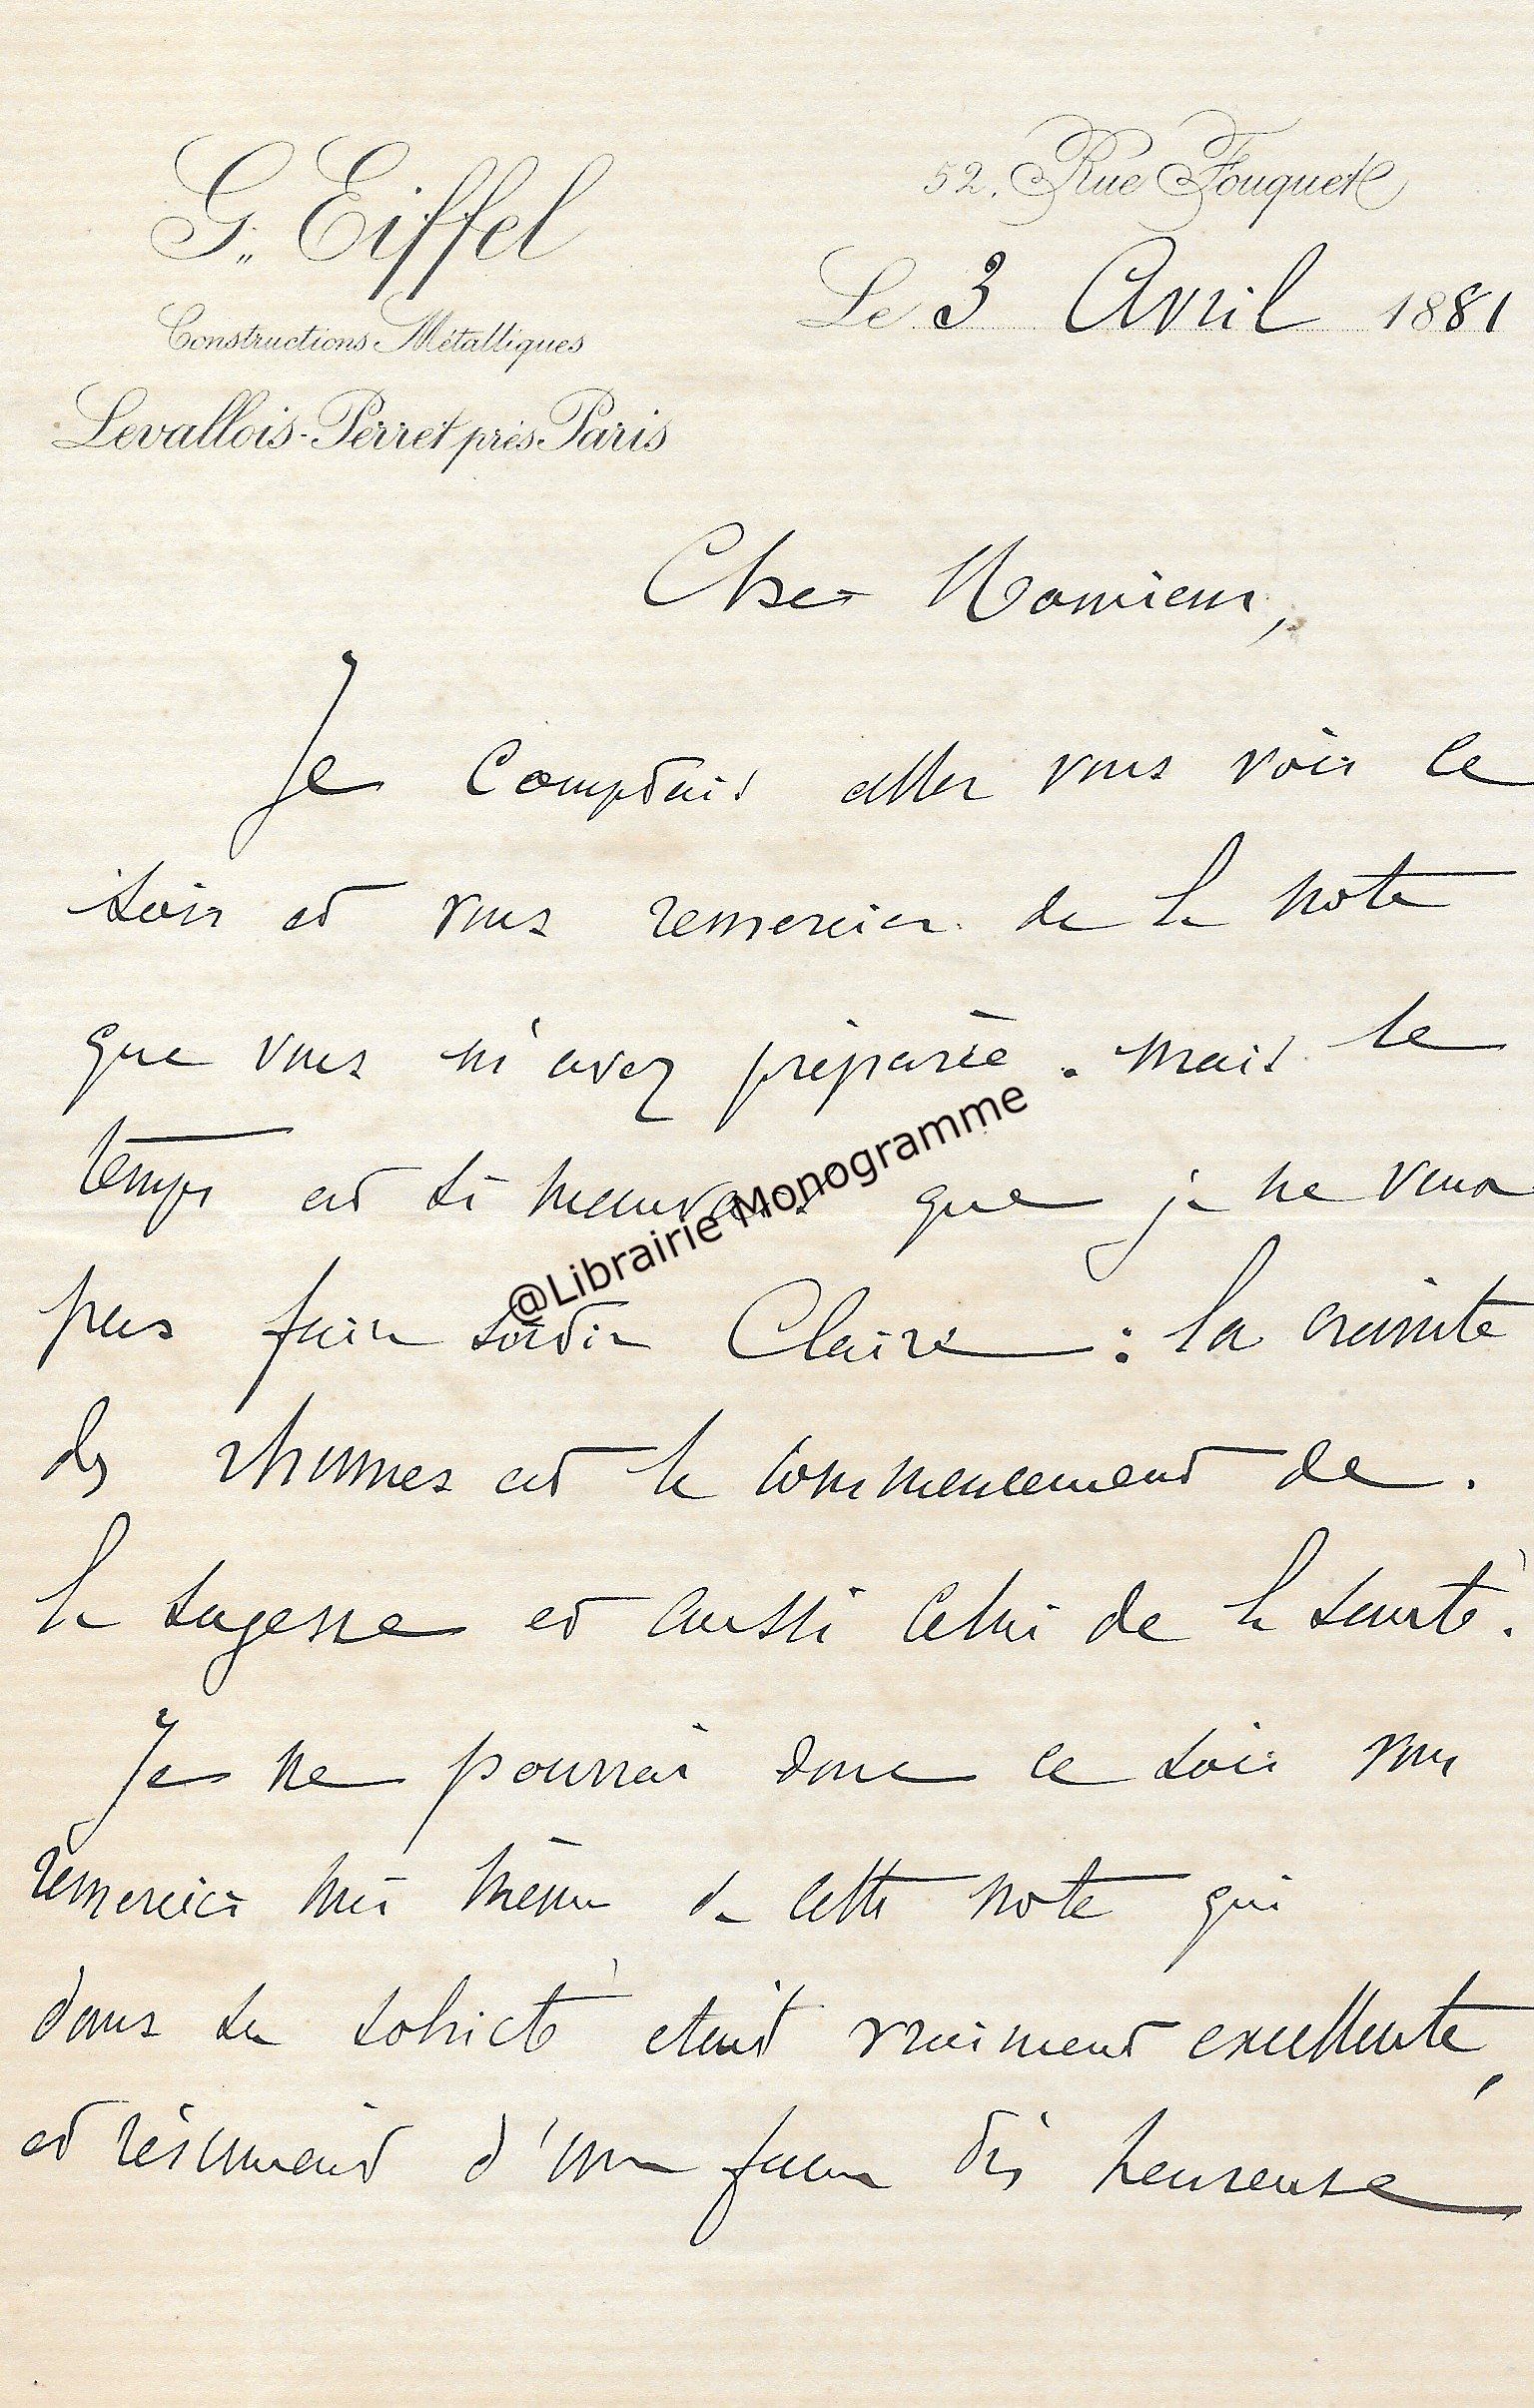 G. Eiffel
Constructions Métalliques
Levallois-Perret près Paris
52, Rue Fouquet
Le 3 Avril 1881
Cher Monsieur,
Je comptais aller vous voir ce
soir et vous remercier de la note
que vous m'avez préparée. mais le
temps est si mauvais que je ne veux
pas faire sortir Claire : la crainte
des rhumes est le commencement de
la sagesse et aussi celui de la santé.
Je ne pourrai donc ce soir vous
remercier moi même de cette note qui
dans sa sobriété était vraiment excellente,
et résumait d'une façon très heureuse
@Librairie Monogramme